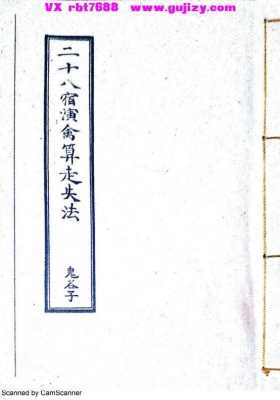 VX rbt7688 www.gujizy.com
二十八宿演禽算走失法
鬼谷子
Scanned by CamScanner